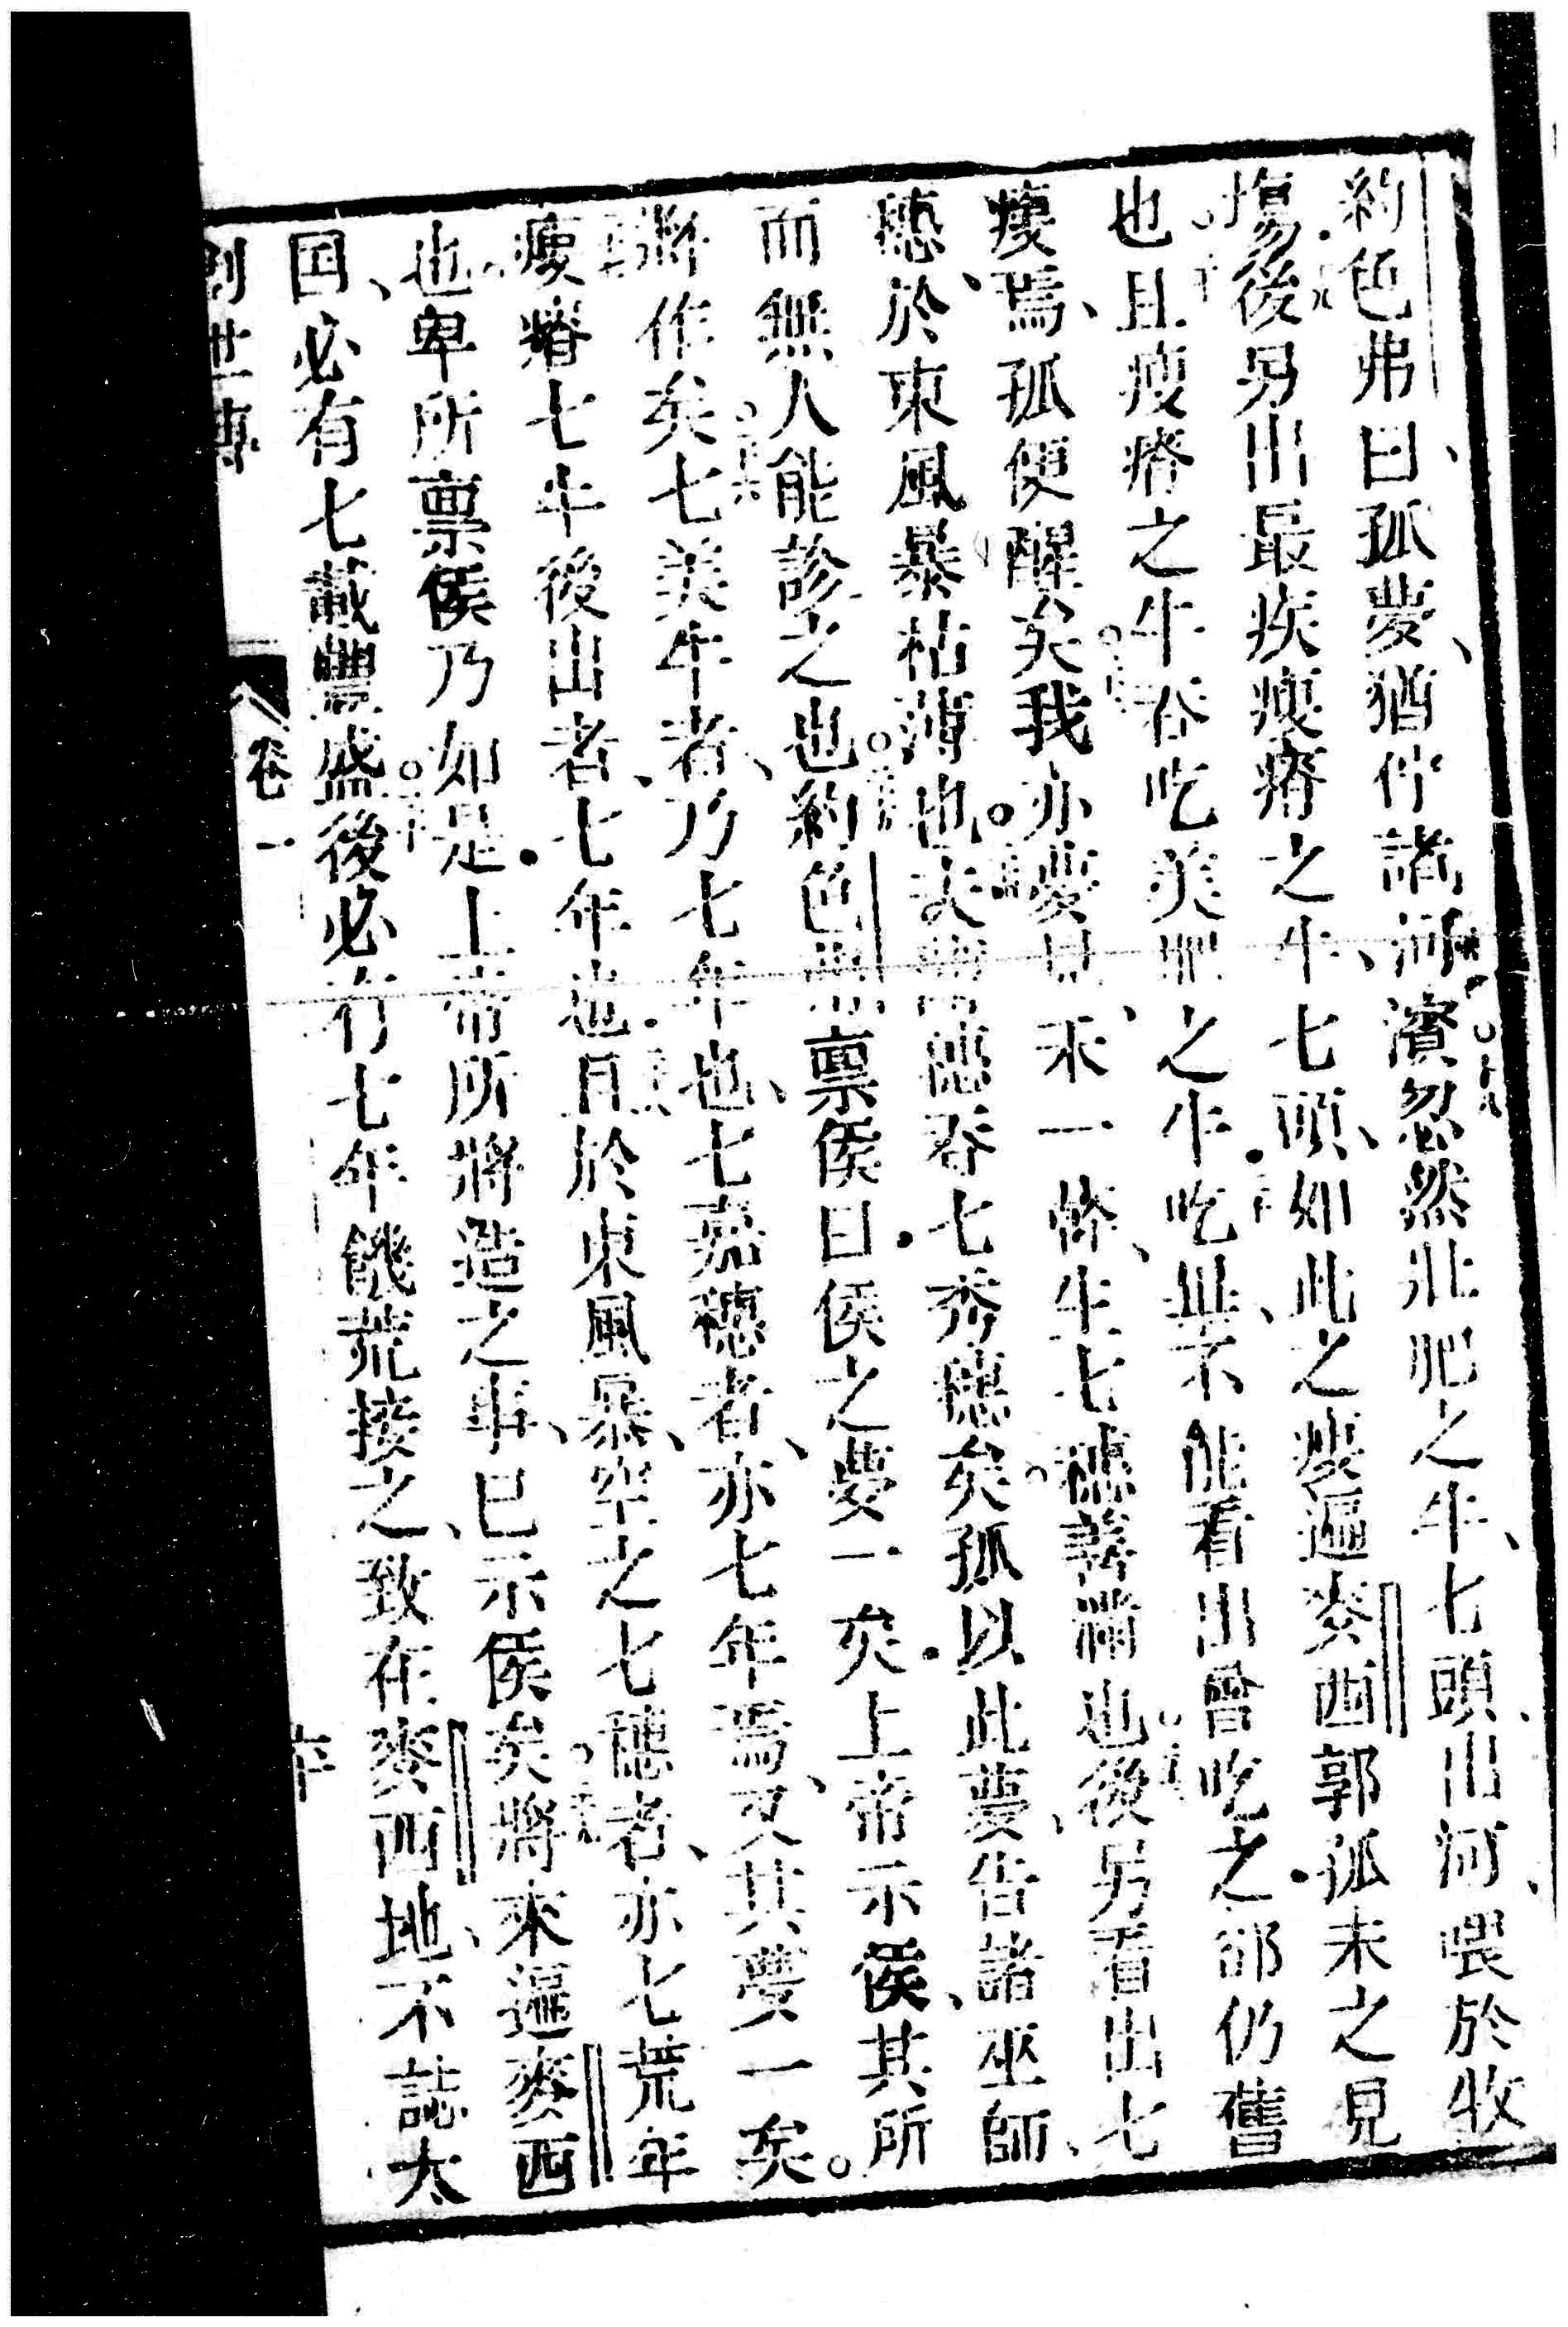 約色弗曰孤夢猶佇諸河濱忽然壯肥之牛七頭出河喂於牧
塲後另出最疾瘦瘠之牛七頭如此之瘦遍麥西郭孤未之見
也且瘦瘠之牛吞吃美肥之牛吃畢不能看出曾吃之卻仍舊
瘦焉孤便醒矣我亦夢見禾一條生七穗善滿也後另看出七
穗於東風暴枯薄也夫薄穗吞七秀穗矣孤以此夢告諸巫師
而無人能診之也約色弗禀侯曰侯之夢一矣上帝示侯其所
將作矣七美牛者乃七年也七嘉穗者亦七年焉又其夢一矣
瘦瘠七牛後出者七年也且於東風暴空之七穗者亦七荒年
也卑所禀侯乃如是上帝所將造之事已示侯矣將來遍麥西
国必有七載豐盛後必有七年饑荒接之致在麥西地不誌太
創世傳 卷一 六十